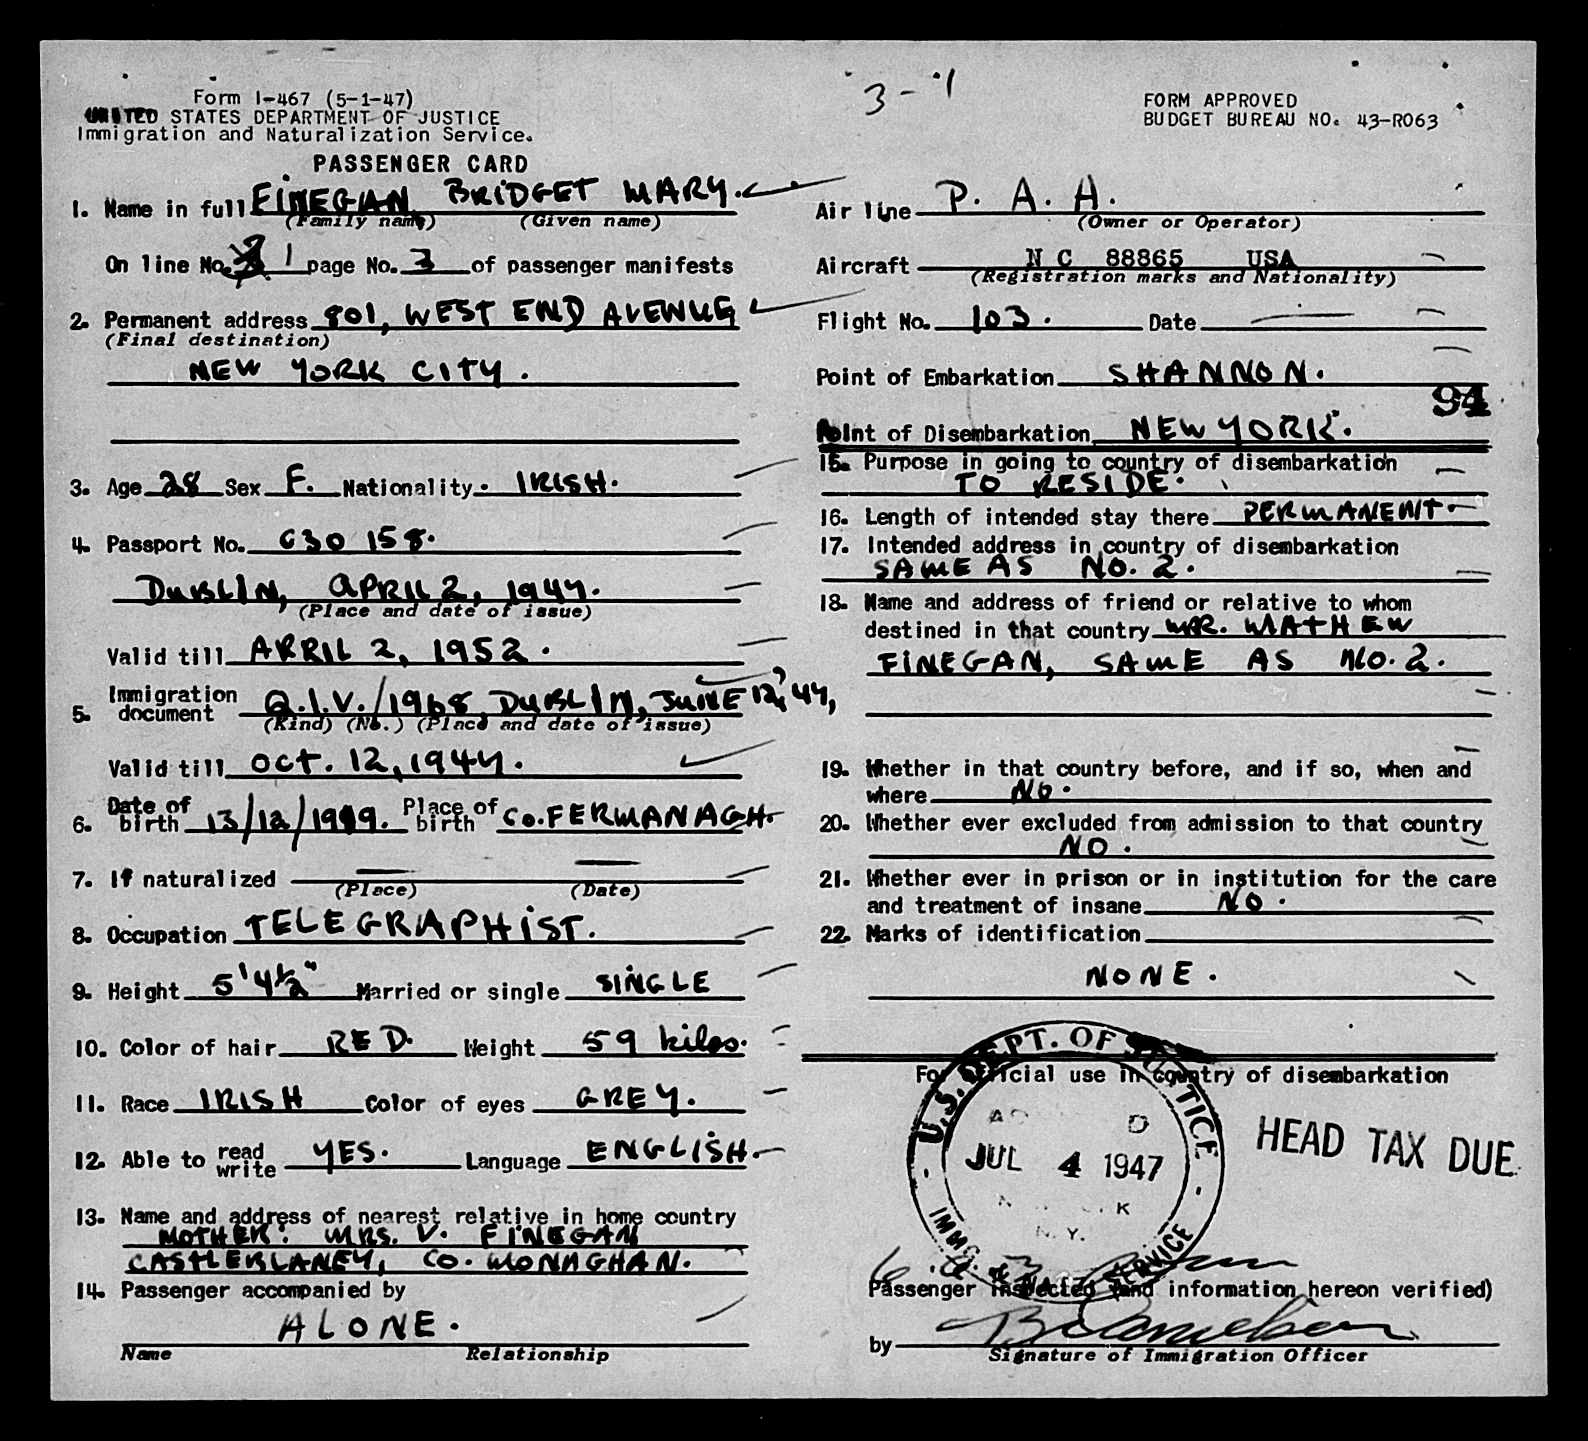 3-1
Form I-467 (5-1-47)
UNITED STATES DEPARTMENT OF JUSTICE
Immigration and Naturalization Service.
PASSENGER CARD
FORM APPROVED
BUDGET BUREAU NO. 43-R063
1. Name in full FINEGAN BRIDGET MARY.
(Family name) (Given name)
On line No. 1 page No. 3 of passenger manifests
2. Permanent address 801, WEST END AVENUE
(Final destination)
NEW YORK CITY.
3. Age 28 Sex F. Nationality. IRISH.
4. Passport No. C30158.
DUBLIN, APRIL 2, 1947.
(Place and date of issue)
Valid till APRIL 2, 1952.
5. Immigration document Q.I.V./1968 DUBLIN, JUNE 12, '47,
(Kind) (No.) (Place and date of issue)
Valid till OCT. 12, 1947.
6. Date of birth 13/12/1919. Place of birth CO. FERMANAGH.
7. If naturalized
(Place) (Date)
8. Occupation TELEGRAPHIST.
9. Height 5'4½" Married or single SINGLE
10. Color of hair RED. Weight 59 kilos.
11. Race IRISH Color of eyes GREY.
12. Able to read write YES. Language ENGLISH.
13. Name and address of nearest relative in home country
MOTHER: MRS. V. FINEGAN
CASTLEBLANEY, CO. MONAGHAN.
14. Passenger accompanied by
ALONE.
Name Relationship
Air line P. A. A.
(Owner or Operator)
Aircraft NC 88865 USA
(Registration marks and Nationality)
Flight No. 103. Date
Point of Embarkation SHANNON.
94
Point of Disembarkation NEW YORK.
15. Purpose in going to country of disembarkation
TO RESIDE.
16. Length of intended stay there PERMANENT.
17. Intended address in country of disembarkation
SAME AS NO. 2.
18. Name and address of friend or relative to whom
destined in that country MR. MATHEW
FINEGAN, SAME AS NO. 2.
19. Whether in that country before, and if so, when and
where NO.
20. Whether ever excluded from admission to that country
NO.
21. Whether ever in prison or in institution for the care
and treatment of insane NO.
22. Marks of identification
NONE.
For official use in country of disembarkation
U.S. DEPT. OF JUSTICE
JUL 4 1947
N.Y.
SERVICE
HEAD TAX DUE
Passenger inspected (and information hereon verified)
by
Signature of Immigration Officer